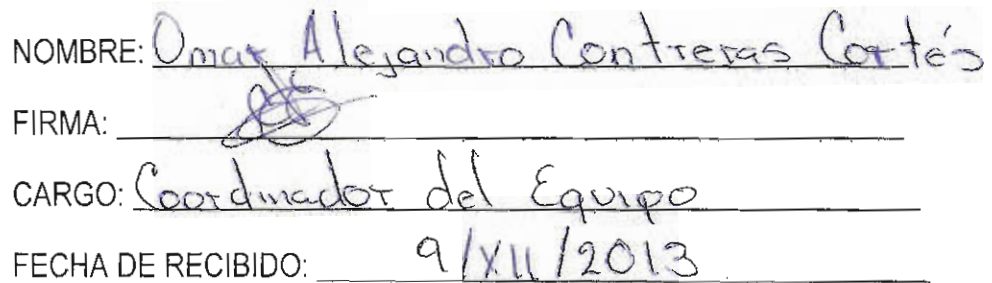 NOMBRE: Omar Alejandro Contreras Cortés
FIRMA:
CARGO: Coordinador del Equipo
FECHA DE RECIBIDO: 9/XII/2013